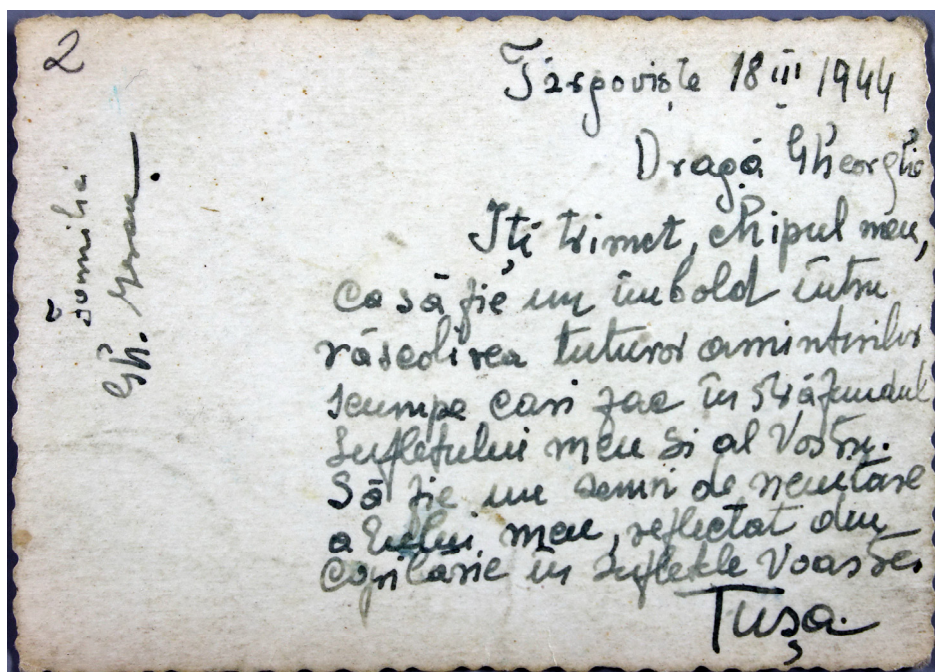 2
Târgoviște 18 III 1944
Dragă Gheorghe
Iți trimet, chipul meu,
Ca să fie un imbold întru
răscolirea tuturor amintirilor
scumpe cari zac în străfundul
Sufletului meu și al Vostru.
Să fie un semn de neuitare
a Eului meu, reflectat din
Copilărie în sufletele Voastre
Tușa.
Gh.